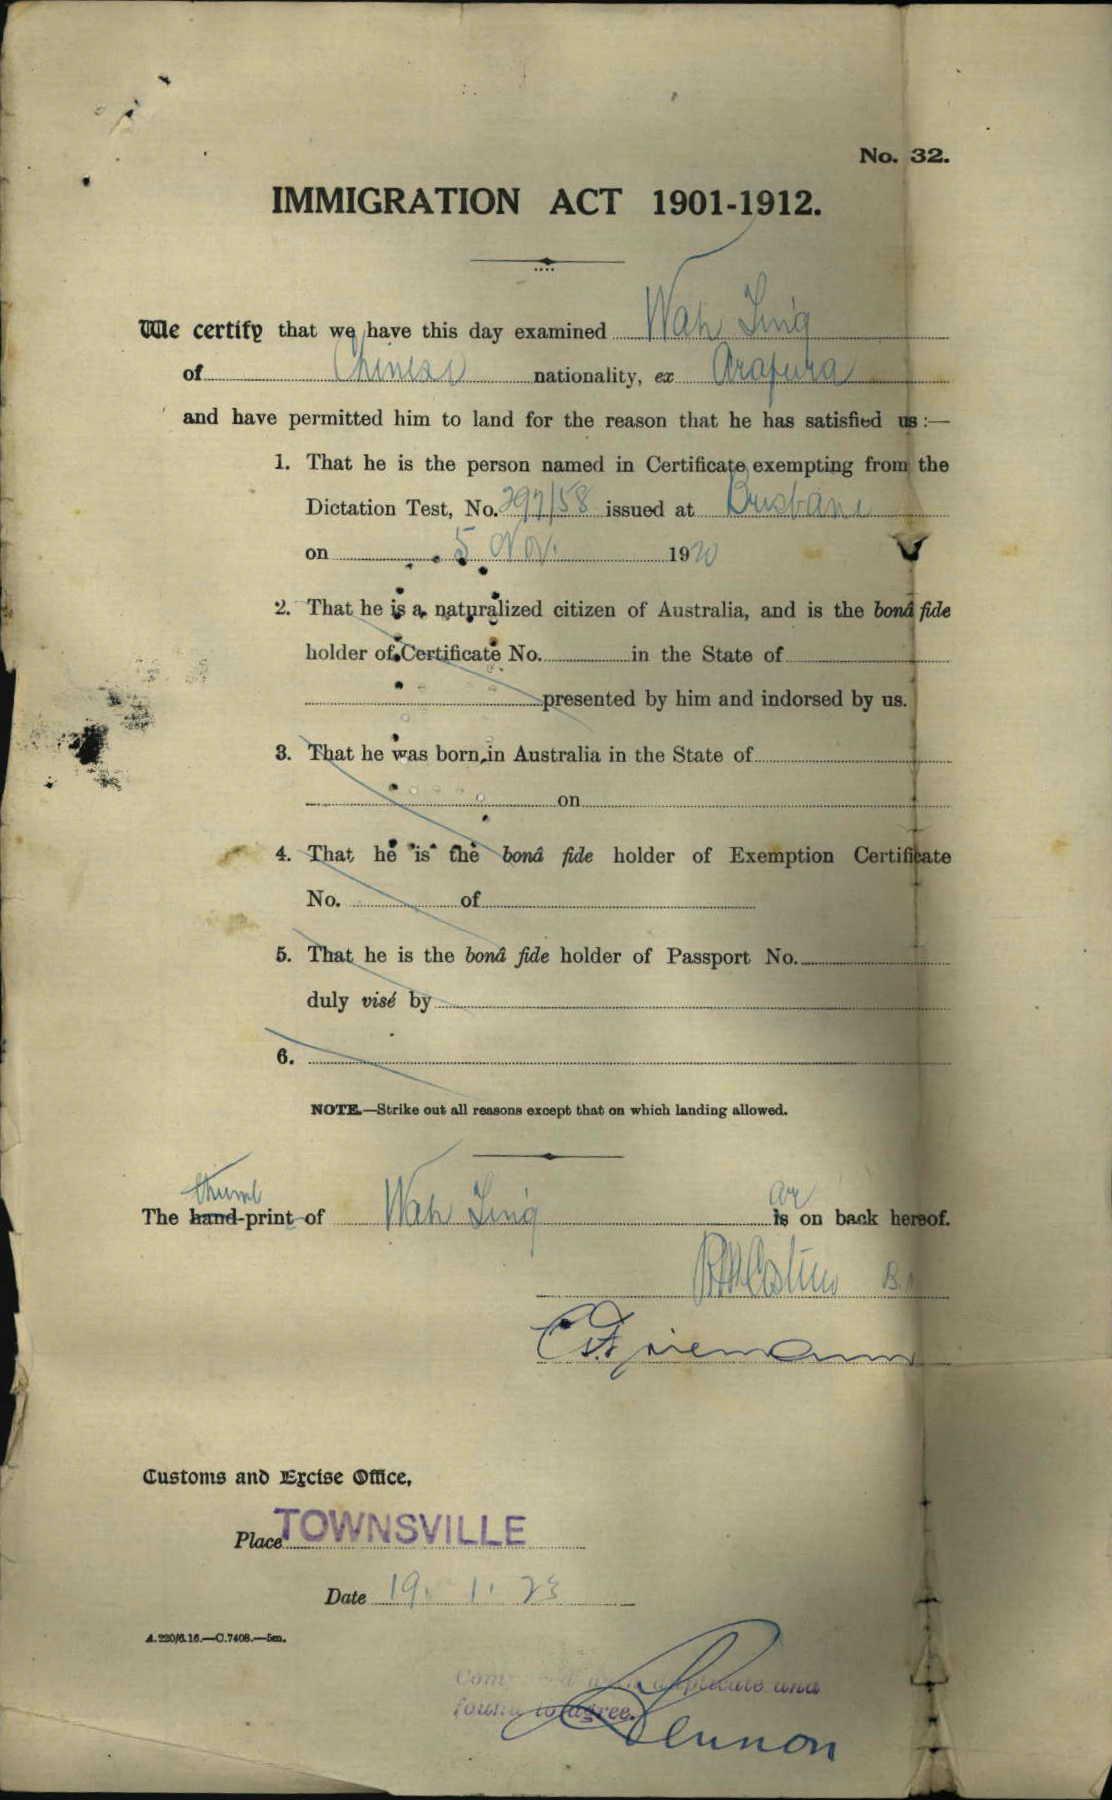 No. 32.
IMMIGRATION ACT 1901-1912.
We certify that we have this day examined Wah Ling
of Chinese nationality, ex Arafura
and have permitted him to land for the reason that he has satisfied us :—
1. That he is the person named in Certificate exempting from the
Dictation Test, No. 297/58 issued at Brisbane
on 5 Nov. 1920
2. That he is a naturalized citizen of Australia, and is the bonâ fide
holder of Certificate No. in the State of
presented by him and indorsed by us.
3. That he was born in Australia in the State of
on
4. That he is the bonâ fide holder of Exemption Certificate
No. of
5. That he is the bonâ fide holder of Passport No.
duly visé by
6.
NOTE.—Strike out all reasons except that on which landing allowed.
thumb are
The hand-print of Wah Ling is on back hereof.
Customs and Excise Office,
Place TOWNSVILLE
Date 19. 1. 23
A.220/6.16.—C.7408.—5m.
duplicate and
found to agree.
Lennon